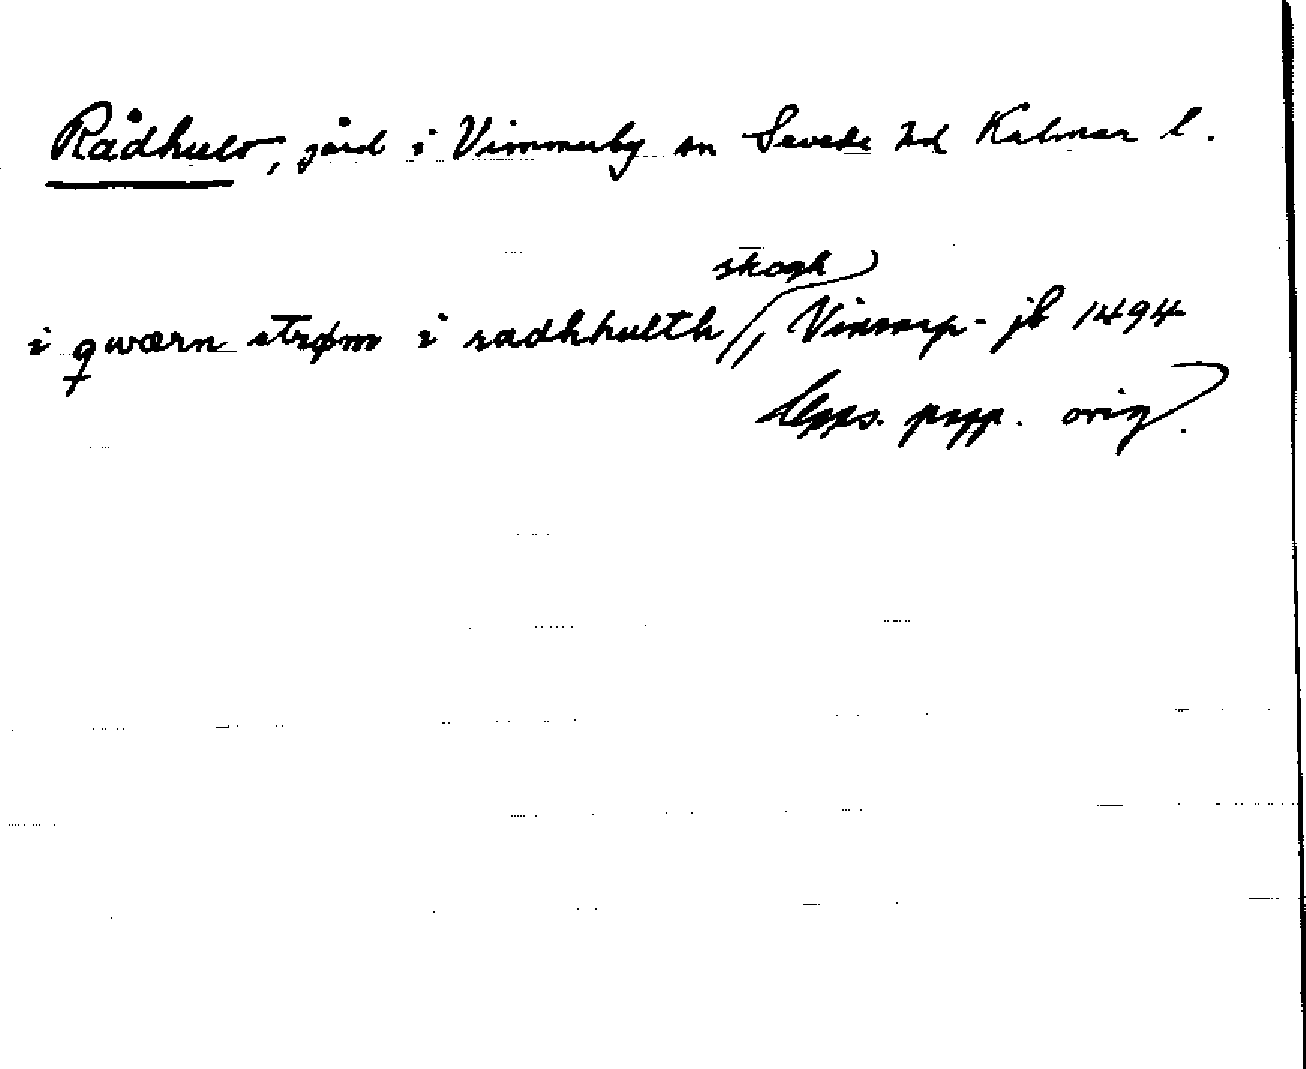 Rådhult, gård i Vimmerby sn Sevede hd Kalmar l.
skogh
i qwærn strøm i radhhulth //, Vinsarp - jb 1494
Upps. papp. orig.